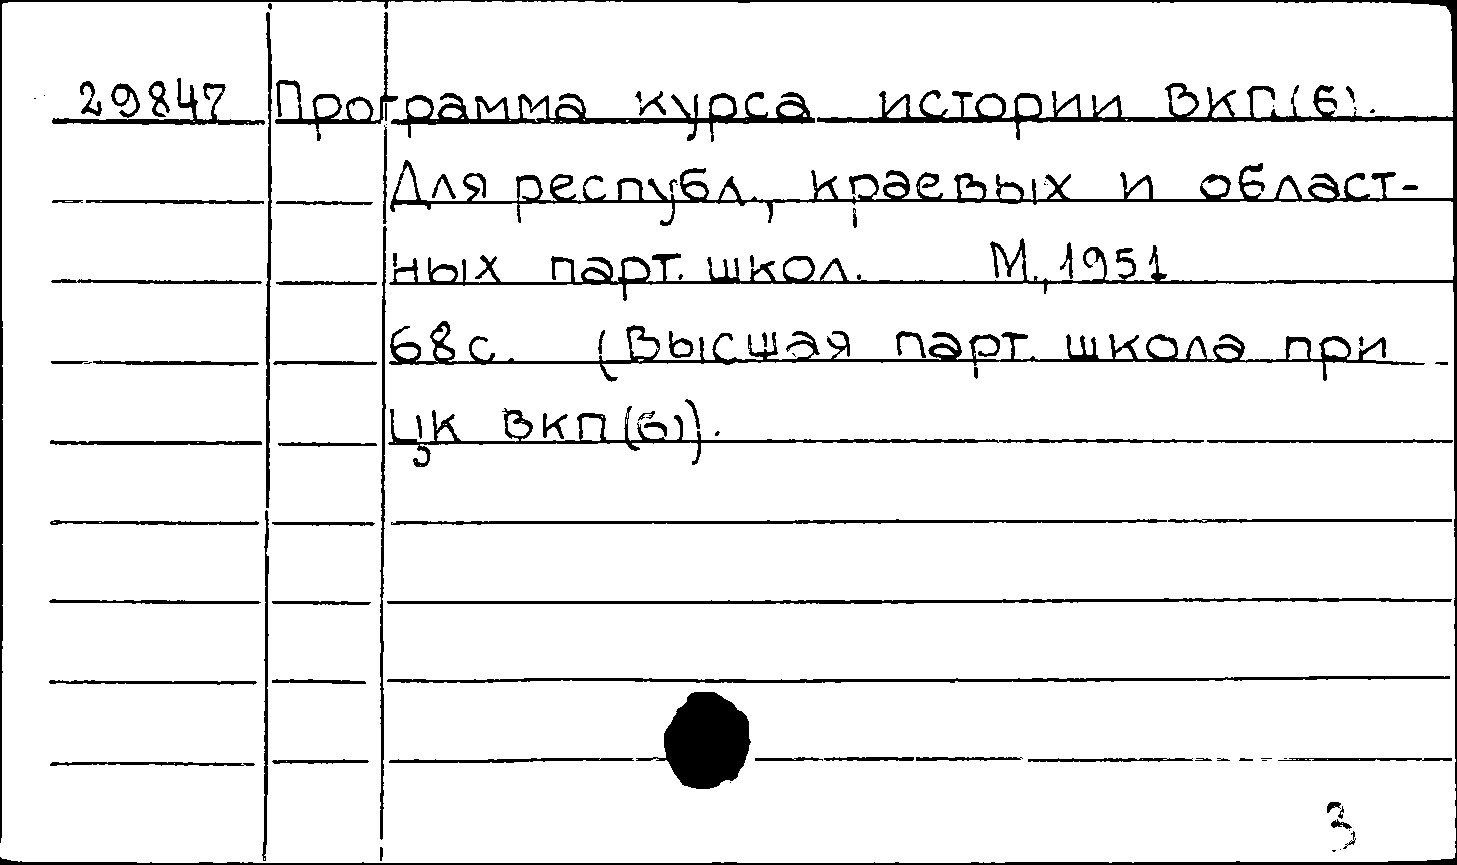 29847 Программа курса истории ВКП(б).
Для республ., краевых и област-
ных парт. школ. М., 1951
68с. (Высшая парт. школа при
ЦК ВКП(б)).
3